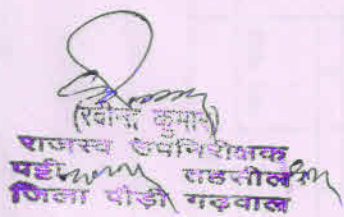 (रवीन्द्र कुमार)
राजस्व उपनिरीक्षक
पट्टी तहसील
जिला पौड़ी गढ़वाल